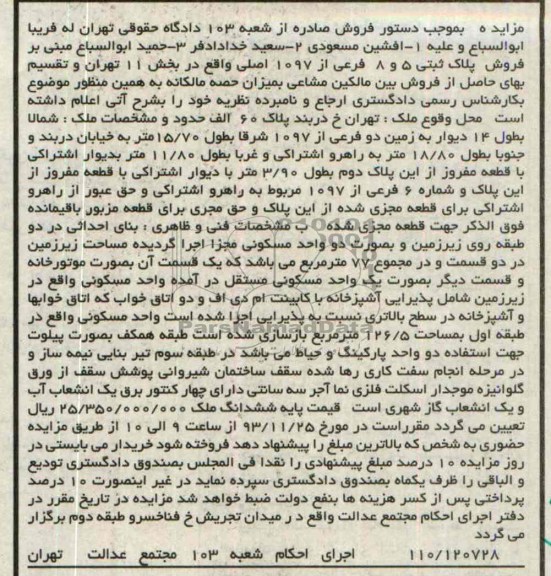 مزایده بموجب دستور فروش صادره از شعبه ۱۰۳ دادگاه حقوقی تهران له فریبا
ابوالسباع و علیه ۱-افشین مسعودی ۲-سعید خدادادفر ۳-حمید ابوالسباع مبنی بر
فروش پلاک ثبتی ۵ و ۸ فرعی از ۱۰۹۷ اصلی واقع در بخش ۱۱ تهران و تقسیم
بهای حاصل از فروش بین مالکین مشاعی بمیزان حصه مالکانه به همین منظور موضوع
بکارشناس رسمی دادگستری ارجاع و نامبرده نظریه خود را بشرح آتی اعلام داشته
است محل وقوع ملک : تهران خ دربند پلاک ۶۰ الف حدود و مشخصات ملک : شمالا
بطول ۱۴ دیوار به زمین دو فرعی از ۱۰۹۷ شرقا بطول ۱۵/۷۰متر به خیابان دربند و
جنوبا بطول ۱۸/۸۰ متر به راهرو اشتراکی و غربا بطول ۱۱/۸۰ متر بدیوار اشتراکی
با قطعه مفروز از این پلاک دوم بطول ۳/۹۰ متر با دیوار اشتراکی با قطعه مفروز از
این پلاک و شماره ۶ فرعی از ۱۰۹۷ مربوط به راهرو اشتراکی و حق عبور از راهرو
اشتراکی برای قطعه مجزی شده از این پلاک و حق مجری برای قطعه مزبور باقیمانده
فوق الذکر جهت قطعه مجزی شده ب مشخصات فنی و ظاهری : بنای احداثی در دو
طبقه روی زیرزمین و بصورت دو واحد مسکونی مجزا اجرا گردیده مساحت زیرزمین
در دو قسمت و در مجموع ۷۷ مترمربع می باشد که یک قسمت آن بصورت موتورخانه
و قسمت دیگر بصورت یک واحد مسکونی مستقل در آمده واحد مسکونی واقع در
زیرزمین شامل پذیرایی آشپزخانه با کابینت ام دی اف و دو اتاق خواب که اتاق خوابها
و آشپزخانه در سطح بالاتری نسبت به پذیرایی اجرا شده است واحد مسکونی واقع در
طبقه اول بمساحت ۱۲۶/۵ مترمربع بازسازی شده است طبقه همکف بصورت پیلوت
جهت استفاده دو واحد پارکینگ و حیاط می باشد در طبقه سوم تیر بنایی نیمه ساز و
در مرحله انجام سفت کاری رها شده سقف ساختمان شیروانی پوشش سقف از ورق
گلوانیزه موجدار اسکلت فلزی نما آجر سه سانتی دارای چهار کنتور برق یک انشعاب آب
و یک انشعاب گاز شهری است قیمت پایه ششدانگ ملک ۲۵/۳۵۰/۰۰۰/۰۰۰ ریال
تعیین می گردد مقرراست در مورخ ۹۳/۱۱/۲۵ از ساعت ۹ الی ۱۰ از طریق مزایده
حضوری به شخص که بالاترین مبلغ را پیشنهاد دهد فروخته شود خریدار می بایستی در
روز مزایده ۱۰ درصد مبلغ پیشنهادی را نقدا فی المجلس بصندوق دادگستری تودیع
و الباقی را ظرف یکماه بصندوق دادگستری سپرده نماید در غیر اینصورت ۱۰ درصد
پرداختی پس از کسر هزینه ها بنفع دولت ضبط خواهد شد مزایده در تاریخ مقرر در
دفتر اجرای احکام مجتمع عدالت واقع در میدان تجریش خ فناخسرو طبقه دوم برگزار
می گردد
۱۱۰/۱۲۰۷۲۸ اجرای احکام شعبه ۱۰۳ مجتمع عدالت تهران
ParsNamadData